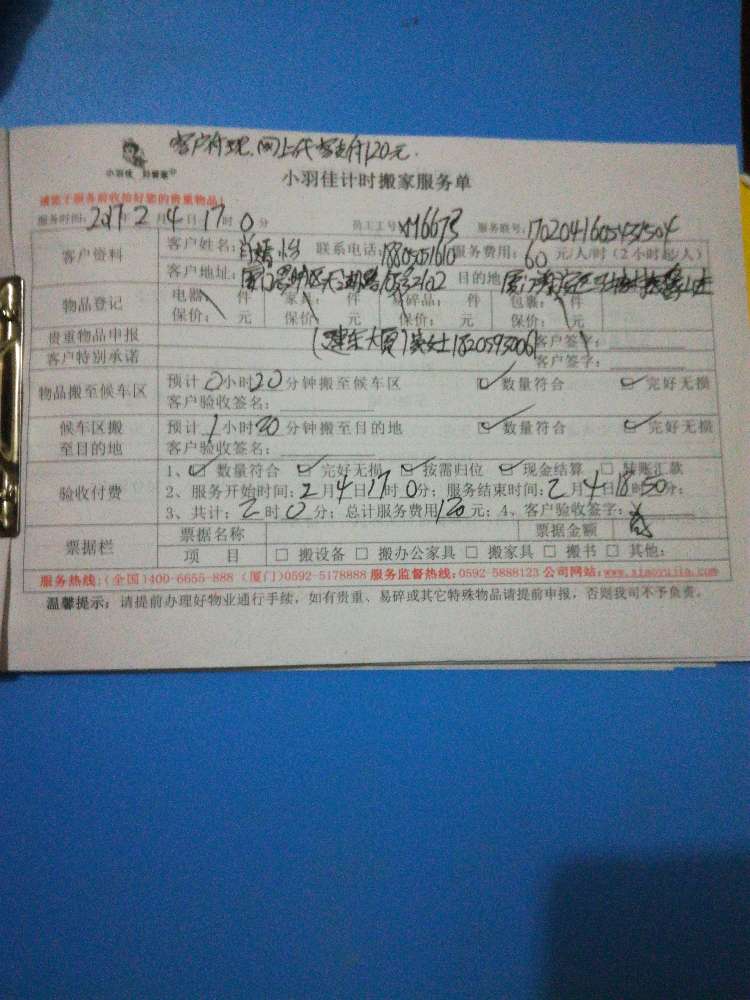 客户付现.网上代客支付120元.
小羽佳 好管家
小羽佳计时搬家服务单
请于服务前收拾好您的贵重物品!
服务时间:2017.2月4日17时0分 员工工号xm6673 服务联号:
客户资料 客户姓名: 联系电话: 服务费用:60元/人/时(2小时起/人)
客户地址: 目的地
物品登记 电器: 件 家具: 件 易碎品: 件 包裹: 件
保价: 元 保价: 元 保价: 元 保价: 元
贵重物品申报 (建东大厦) 女士 客户签字:
客户特别承诺 客户签字:
物品搬至候车区 预计0小时20分钟搬至候车区 数量符合 完好无损
客户验收签名:
候车区搬至目的地 预计1小时20分钟搬至目的地 数量符合 完好无损
客户验收签名:
验收付费 1、数量符合 完好无损 按需归位 现金结算 转账汇款
2、服务开始时间:2月4日17时0分;服务结束时间:2月4日18时50分;
3、共计:2时0分;总计服务费用120元;4、客户验收签字:
票据栏 票据名称 票据金额
项 目 搬设备 搬办公家具 搬家具 搬书 其他:
服务热线:(全国)400-6655-888 (厦门)0592-5178888 服务监督热线:0592-5888123 公司网站:www.xiaoyujia.com
温馨提示:请提前办理好物业通行手续,如有贵重、易碎或其它特殊物品请提前申报,否则我司不予负责。